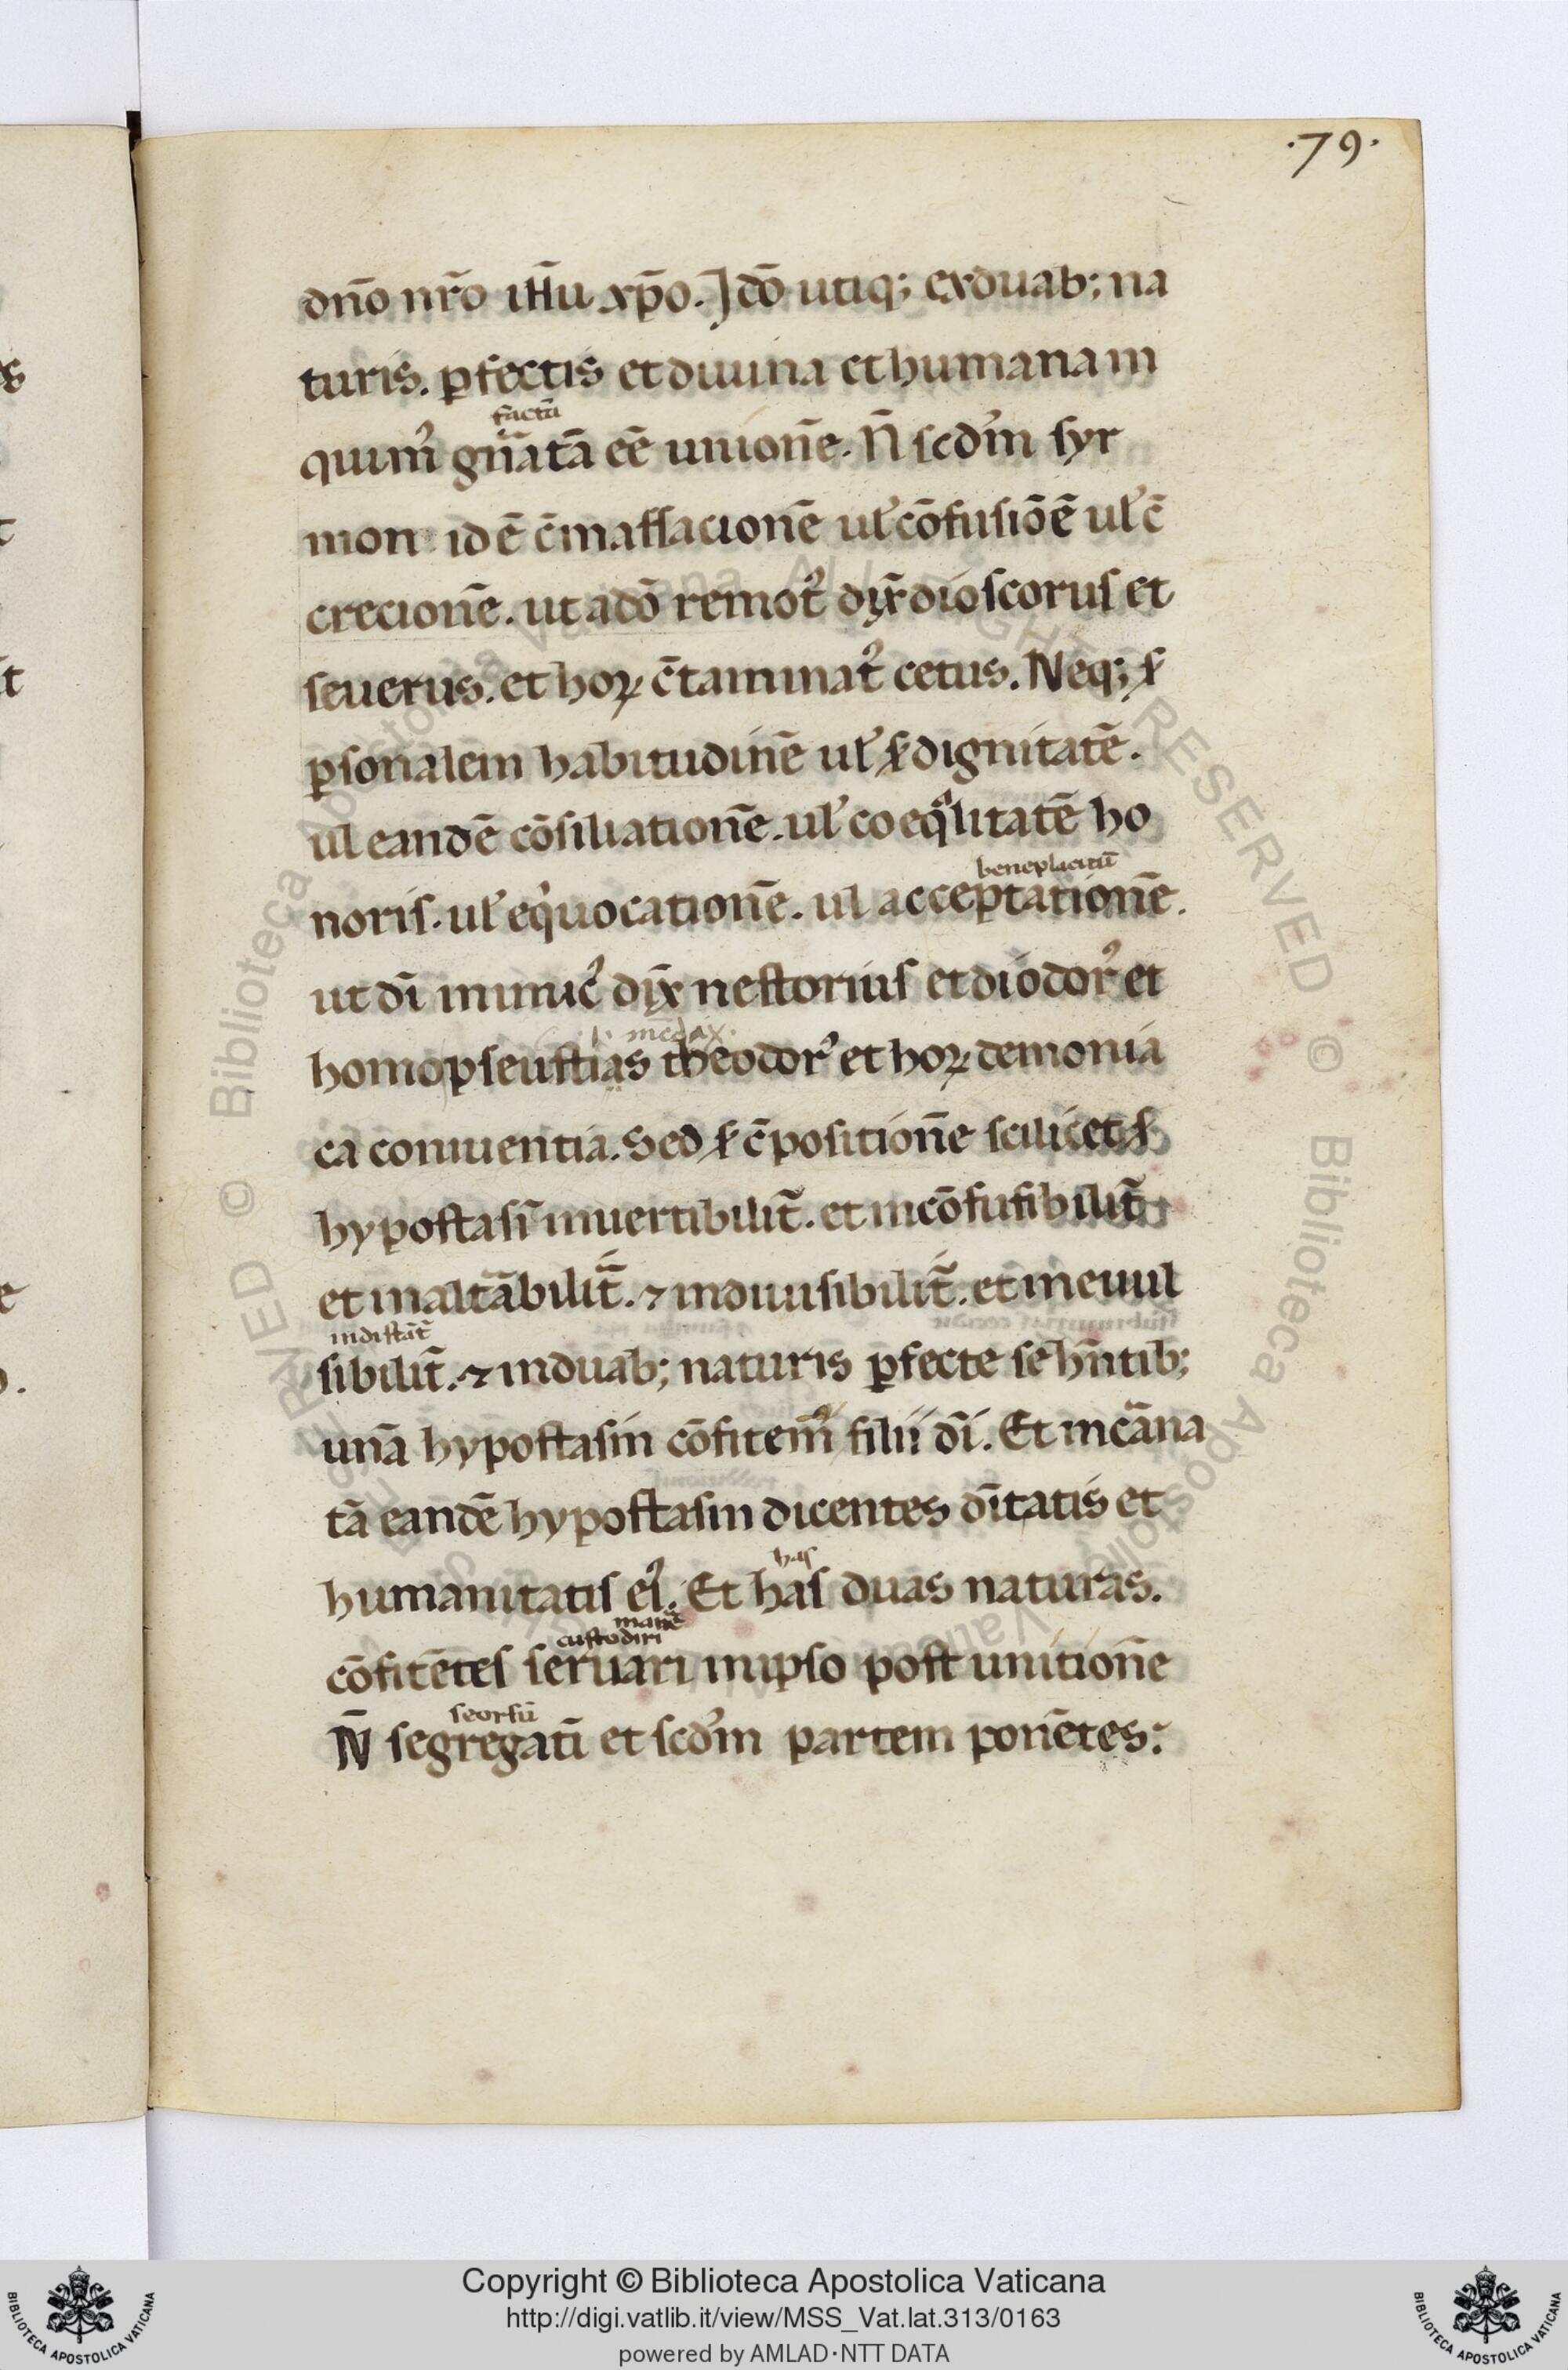 .79.
dño nr̃o iħu xp̄o. Idō utiq; exduab; na
turis. ꝑfectis et diuina et humana in
factā
quim᷒ gn̄atā eē unionē. N̄ scd᷒m syr
mon id ē c̄massacionē ul̕ cōfusiōē ul̕ c̄
crecionē. ut a dō remot᷒ dix̄ dioscorus et
seuerus. et hoꝝ c̄taminat᷒ cetus. Neq; ẜ
ꝑsonalem habitudinē ul̕ ẜ dignitatē.
ul eandē cōsiliationē. ul̕ coeqᷓlitatē ho
beneplacitū
noris. ul̕ eq̇uocationē. ul acceptationē.
ut dī inimic᷒ dix̄ nestorius et diodor᷒ et
.i. mēdax.
homopseustias theodor᷒ et hoꝝ demonia
ca conuuentia. Sed ẜ c̄positionē scilicet ẜ
hypostasī inuertibilit̄. et incōfusibilit̄
et inaltābilit̄. ⁊ indiuisibilit̄. et ineuul
indistāt̄
sibilit̄. ⁊ induab; naturis ꝑfecte se hn̄tib;
unā hypostasin cōfitem᷒ filii dī. Et incāna
tā eandē hypostasin dicentes dītatis et
has
humanitatis ei᷒. Et has duas naturas.
manē
custodiri
cōfitētes seruari in ipso post unitionē
seorsū
N̄ segregatī et scd᷒m partem ponētes:
Copyright © Biblioteca Apostolica Vaticana
http://digi.vatlib.it/view/MSS_Vat.lat.313/0163
powered by AMLAD·NTT DATA
BIBLIOTECA APOSTOLICA VATICANA
BIBLIOTECA APOSTOLICA VATICANA